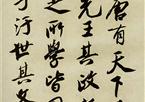 唐有天下
先王其政
所學皆
于汙世其文